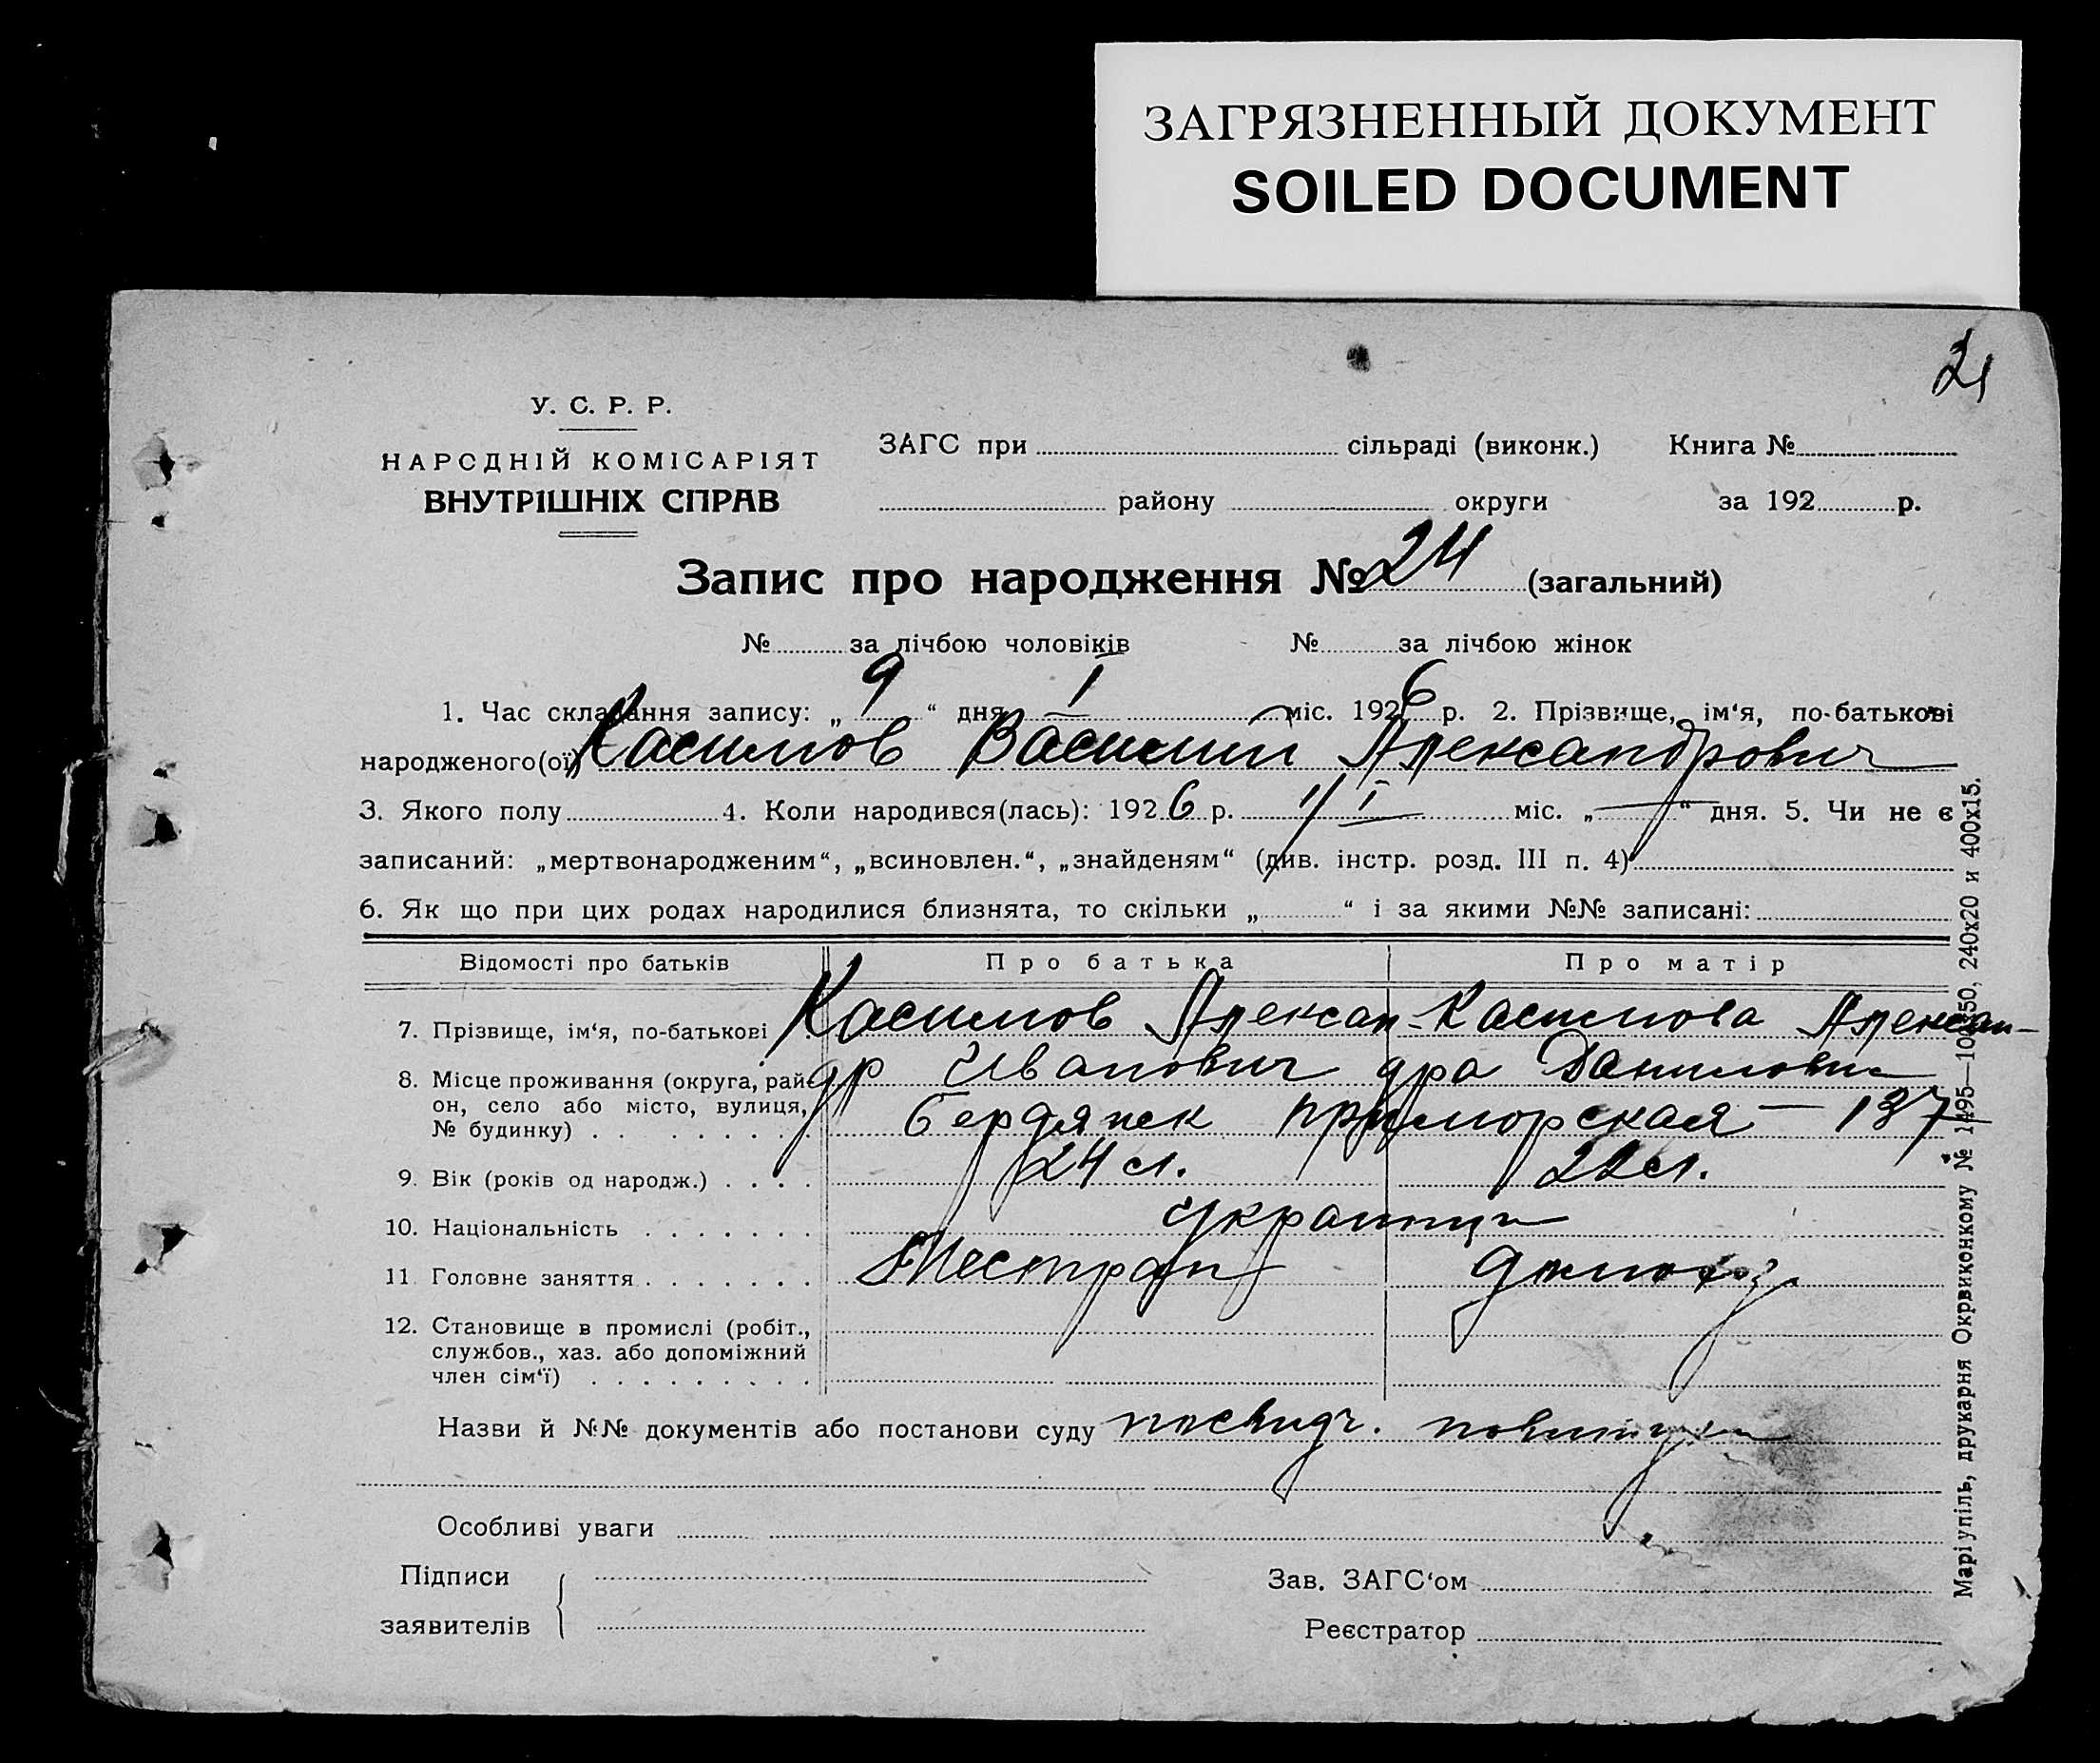 ЗАГРЯЗНЕННЫЙ ДОКУМЕНТ
SOILED DOCUMENT
У. С. Р. Р.
НАРОДНІЙ КОМІСАРІЯТ
ВНУТРІШНІХ СПРАВ
ЗАГС при сільраді (виконк.) Книга №
району округи за 192 р.
Запис про народження № 24 (загальний)
№ за лічбою чоловіків № за лічбою жінок
1. Час складання запису: „ 9 “ дня I міс. 1926 р. 2. Прізвище, ім‘я, по-батькові
народженого(ої) Касимов Василий Александрович
3. Якого полу 4. Коли народився(лась): 1926 р. 1/I міс. „ — “ дня. 5. Чи не є
записаний: „мертвонародженим“, „всиновлен.“, „знайденям“ (див. інстр. розд. III п. 4)
6. Як що при цих родах народилися близнята, то скільки „ “ і за якими №№ записані:
Відомості про батьків Про батька Про матір
7. Прізвище, ім‘я, по-батькові Касимов Алексан- Касимова Алексан-
др Иванович дра Даниловн
8. Місце проживання (округа, рай-
он, село або місто, вулиця,
№ будинку) Бердянск Приморская — 137
9. Вік (років од народж.) 24 л. 22 л.
10. Національність
11 Головне заняття домохоз.
12. Становище в промислі (робіт.,
службов., хаз. або допоміжний
член сім‘ї)
Назви й №№ документів або постанови суду посвидч.
Особливі уваги
Підписи
заявителів
Зав. ЗАГС‘ом
Реєстратор
Маріупіль, друкарня Окрвиконкому № 1495—100X50, 240x20 и 400x15.